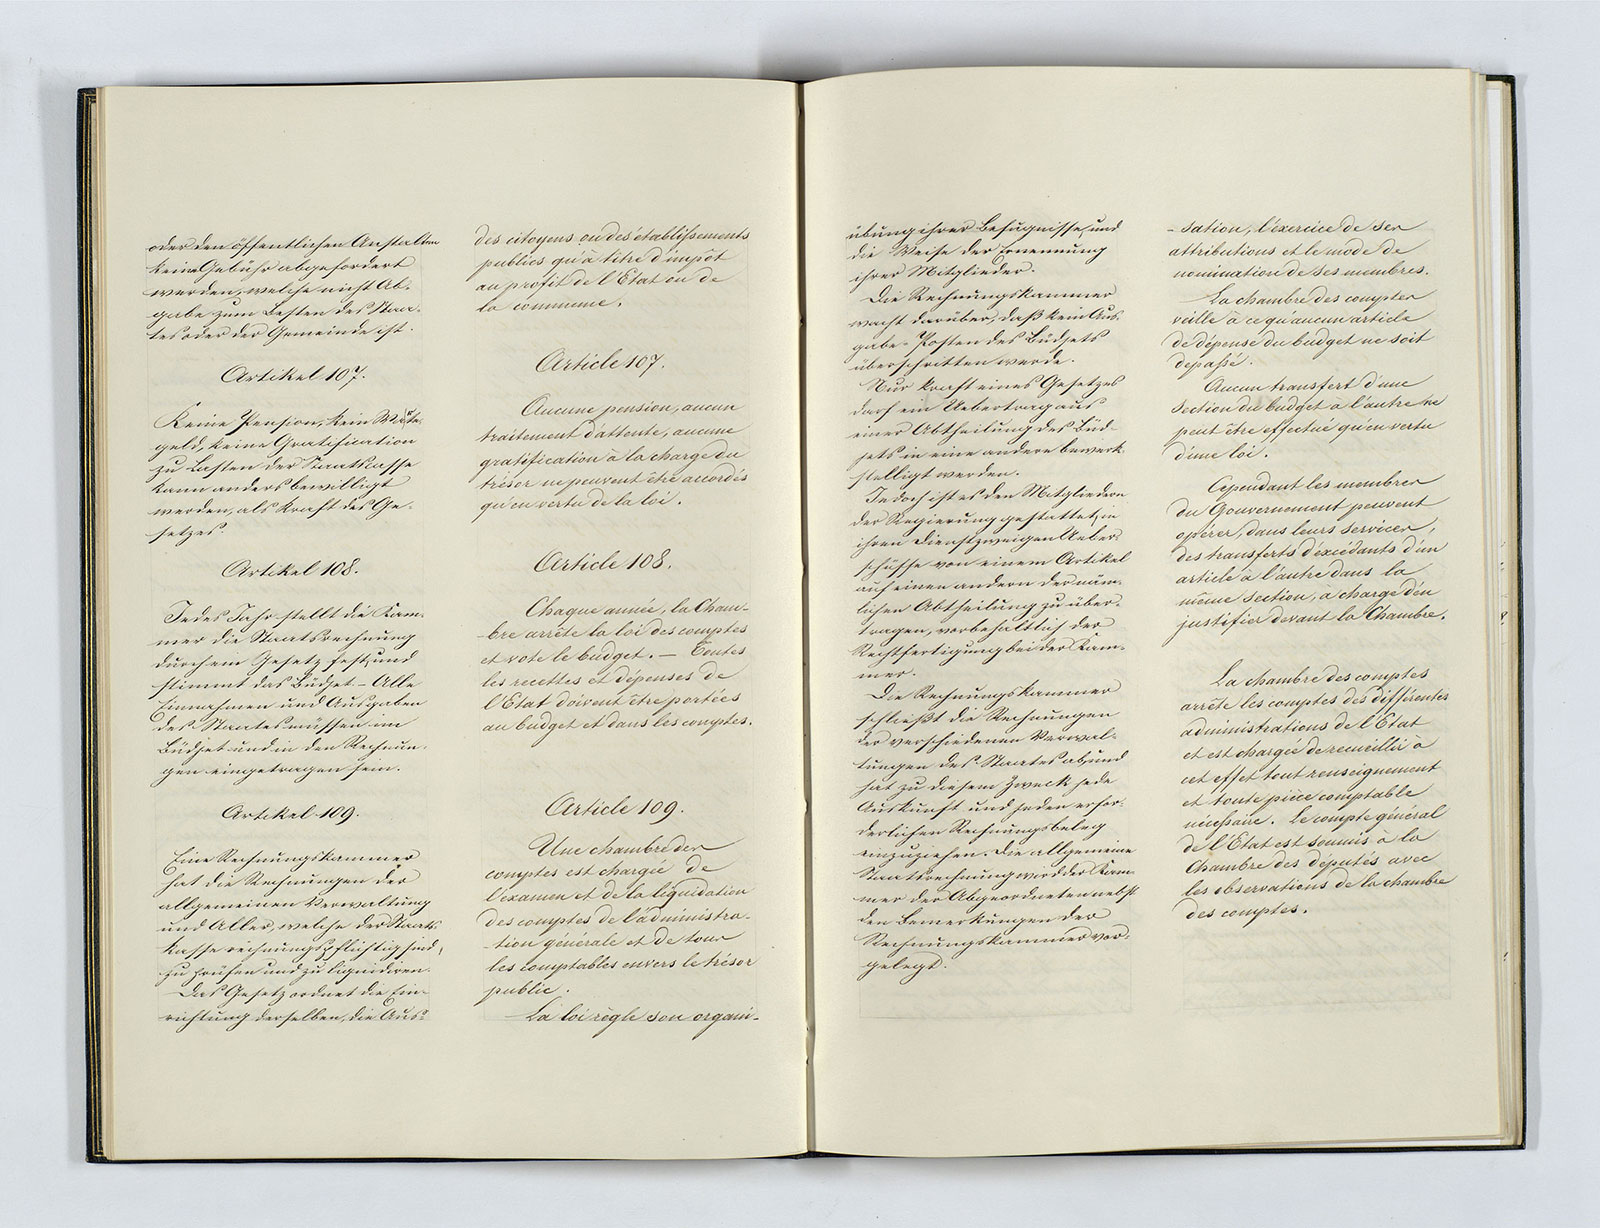 oder den öffentlichen Anstalten
keine Gebühr abgefordert
werden, welche nicht Ab-
gabe zum Besten des Staa-
tes oder der Gemeinde ist.
Artikel 107.
Keine Pension, kein Warte-
geld, keine Gratification
zu Lasten der Staatscasse
kann anders bewilligt
werden, als Kraft des Ge-
setzes.
Artikel 108.
Jedes Jahr stellt die Kam-
mer die Staatsrechnung
durch ein Gesetz fest, und
stimmt das Büdjet. – Alle
Einnahmen und Ausgaben
des Staates müssen im
Büdjet und in den Rechnun-
gen eingetragen sein.
Artikel 109.
Eine Rechnungskammer
hat die Rechnungen der
allgemeinen Verwaltung
und Aller, welche der Staats-
kasse rechnungspflichtig sind,
zu prüfen und zu liquidiren.
Das Gesetz ordnet die Ein-
richtung derselben, die Aus-
des citoyens ou des établissements
publics qu'à titre d'impôt
au profit de l'Etat ou de
la commune.
Article 107.
Aucune pension, aucun
traitement d'attente, aucune
gratification à la charge du
trésor ne peuvent être accordés
qu'en vertu de la loi.
Article 108.
Chaque année, la Cham-
-bre arrête la loi des comptes
et vote le budget. — Toutes
les recettes et dépenses de
l'Etat doivent être portées
au budget et dans les comptes.
Article 109.
Une chambre des
comptes est chargée de
l'examen et de la liquidation
des comptes de l'administra-
-tion générale et de tous
les comptables envers le trésor
public.
La loi règle son organi-
übung ihrer Befugnisse, und
die Weise der Ernennung
ihrer Mitglieder.
Die Rechnungskammer
wacht darüber, daß kein Aus-
gabe-Posten des Büdjets
überschritten werde.
Nur kraft eines Gesetzes
darf ein Uebertrag aus
einer Abtheilung des Büd-
jets in eine andere bewerk-
stelligt werden.
Jedoch ist es den Mitgliedern
der Regierung gestattet, in
ihren Dienstzweigen Ueber-
schüsse von einem Artikel
auf einen andern der näm-
lichen Abtheilung zu über-
tragen, vorbehaltlich der
Rechtfertigung bei der Kam-
mer.
Die Rechnungskammer
schließt die Rechnungen
der verschiedenen Verwal-
tungen des Staates ab, und
hat zu diesem Zweck jede
Auskunft und jeden erfor-
derlichen Rechnungsbeleg
einzuziehen. Die allgemeine
Staatsrechnung wird der Kam-
mer der Abgeordneten nebst
den Bemerkungen der
Rechnungskammer vor-
gelegt.
-sation, l'exercice de ses
attributions et le mode de
nomination de ses membres.
La chambre des comptes
veille à ce qu'aucun article
de dépense du budget ne soit
depassé.
Aucun transfert d'une
section du budget à l'autre ne
peut être effectué qu'en vertu
d'une loi.
Cependant les membres
du Gouvernement peuvent
opérer, dans leurs services,
des transferts d'excédants d'un
article à l'autre dans la
même section, à charge d'en
justifier devant la Chambre.
La chambre des comptes
arrête les comptes des différentes
administrations de l'Etat
et est chargée de recueillir à
cet effet tout renseignement
et toute pièce comptable
nécessaire. Le compte général
de l'Etat est soumis à la
Chambre des députés avec
les observations de la chambre
des comptes.